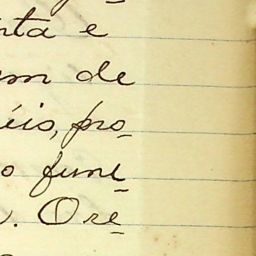 nta e
m de
éis, pro-
o fune-
. O re-